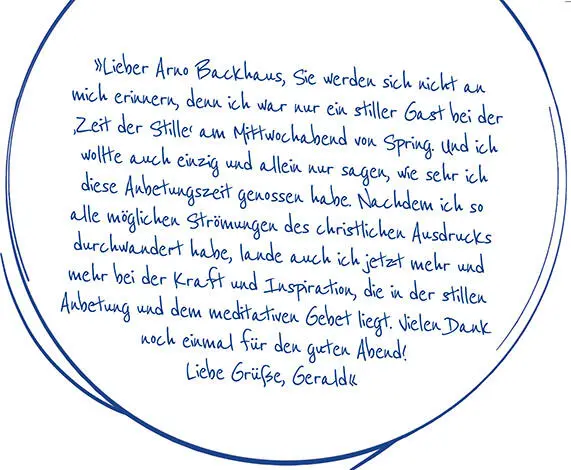 »Lieber Arno Backhaus, Sie werden sich nicht an
mich erinnern, denn ich war nur ein stiller Gast bei der
‚Zeit der Stille‘ am Mittwochabend von Spring. Und ich
wollte auch einzig und allein nur sagen, wie sehr ich
diese Anbetungszeit genossen habe. Nachdem ich so
alle möglichen Strömungen des christlichen Ausdrucks
durchwandert habe, lande auch ich jetzt mehr und
mehr bei der Kraft und Inspiration, die in der stillen
Anbetung und dem meditativen Gebet liegt. Vielen Dank
noch einmal für den guten Abend!
Liebe Grüße, Gerald«